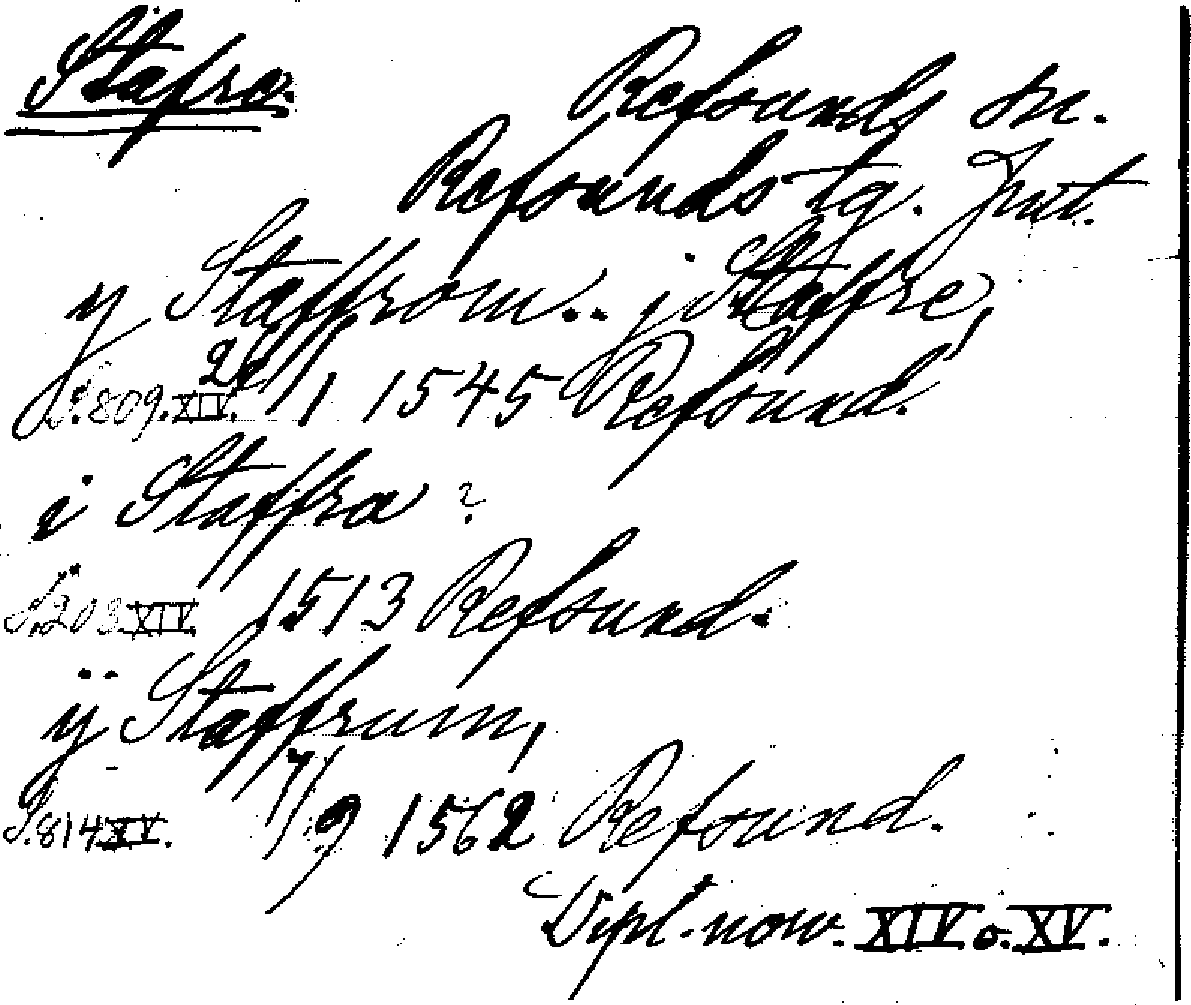 Stafre.
Refsunds sn.
Refsunds tg. Jmt.
y Staffrom.. j Staffre,
S. 809. XIV. 1 1545 Refsund.
i Staffra ?
S. 203 XIV. 1513 Refsund.
ÿ Staffrum,
S. 814 XV. 7/9 1562 Refsund.
Dipl. norv. XIV o. XV.